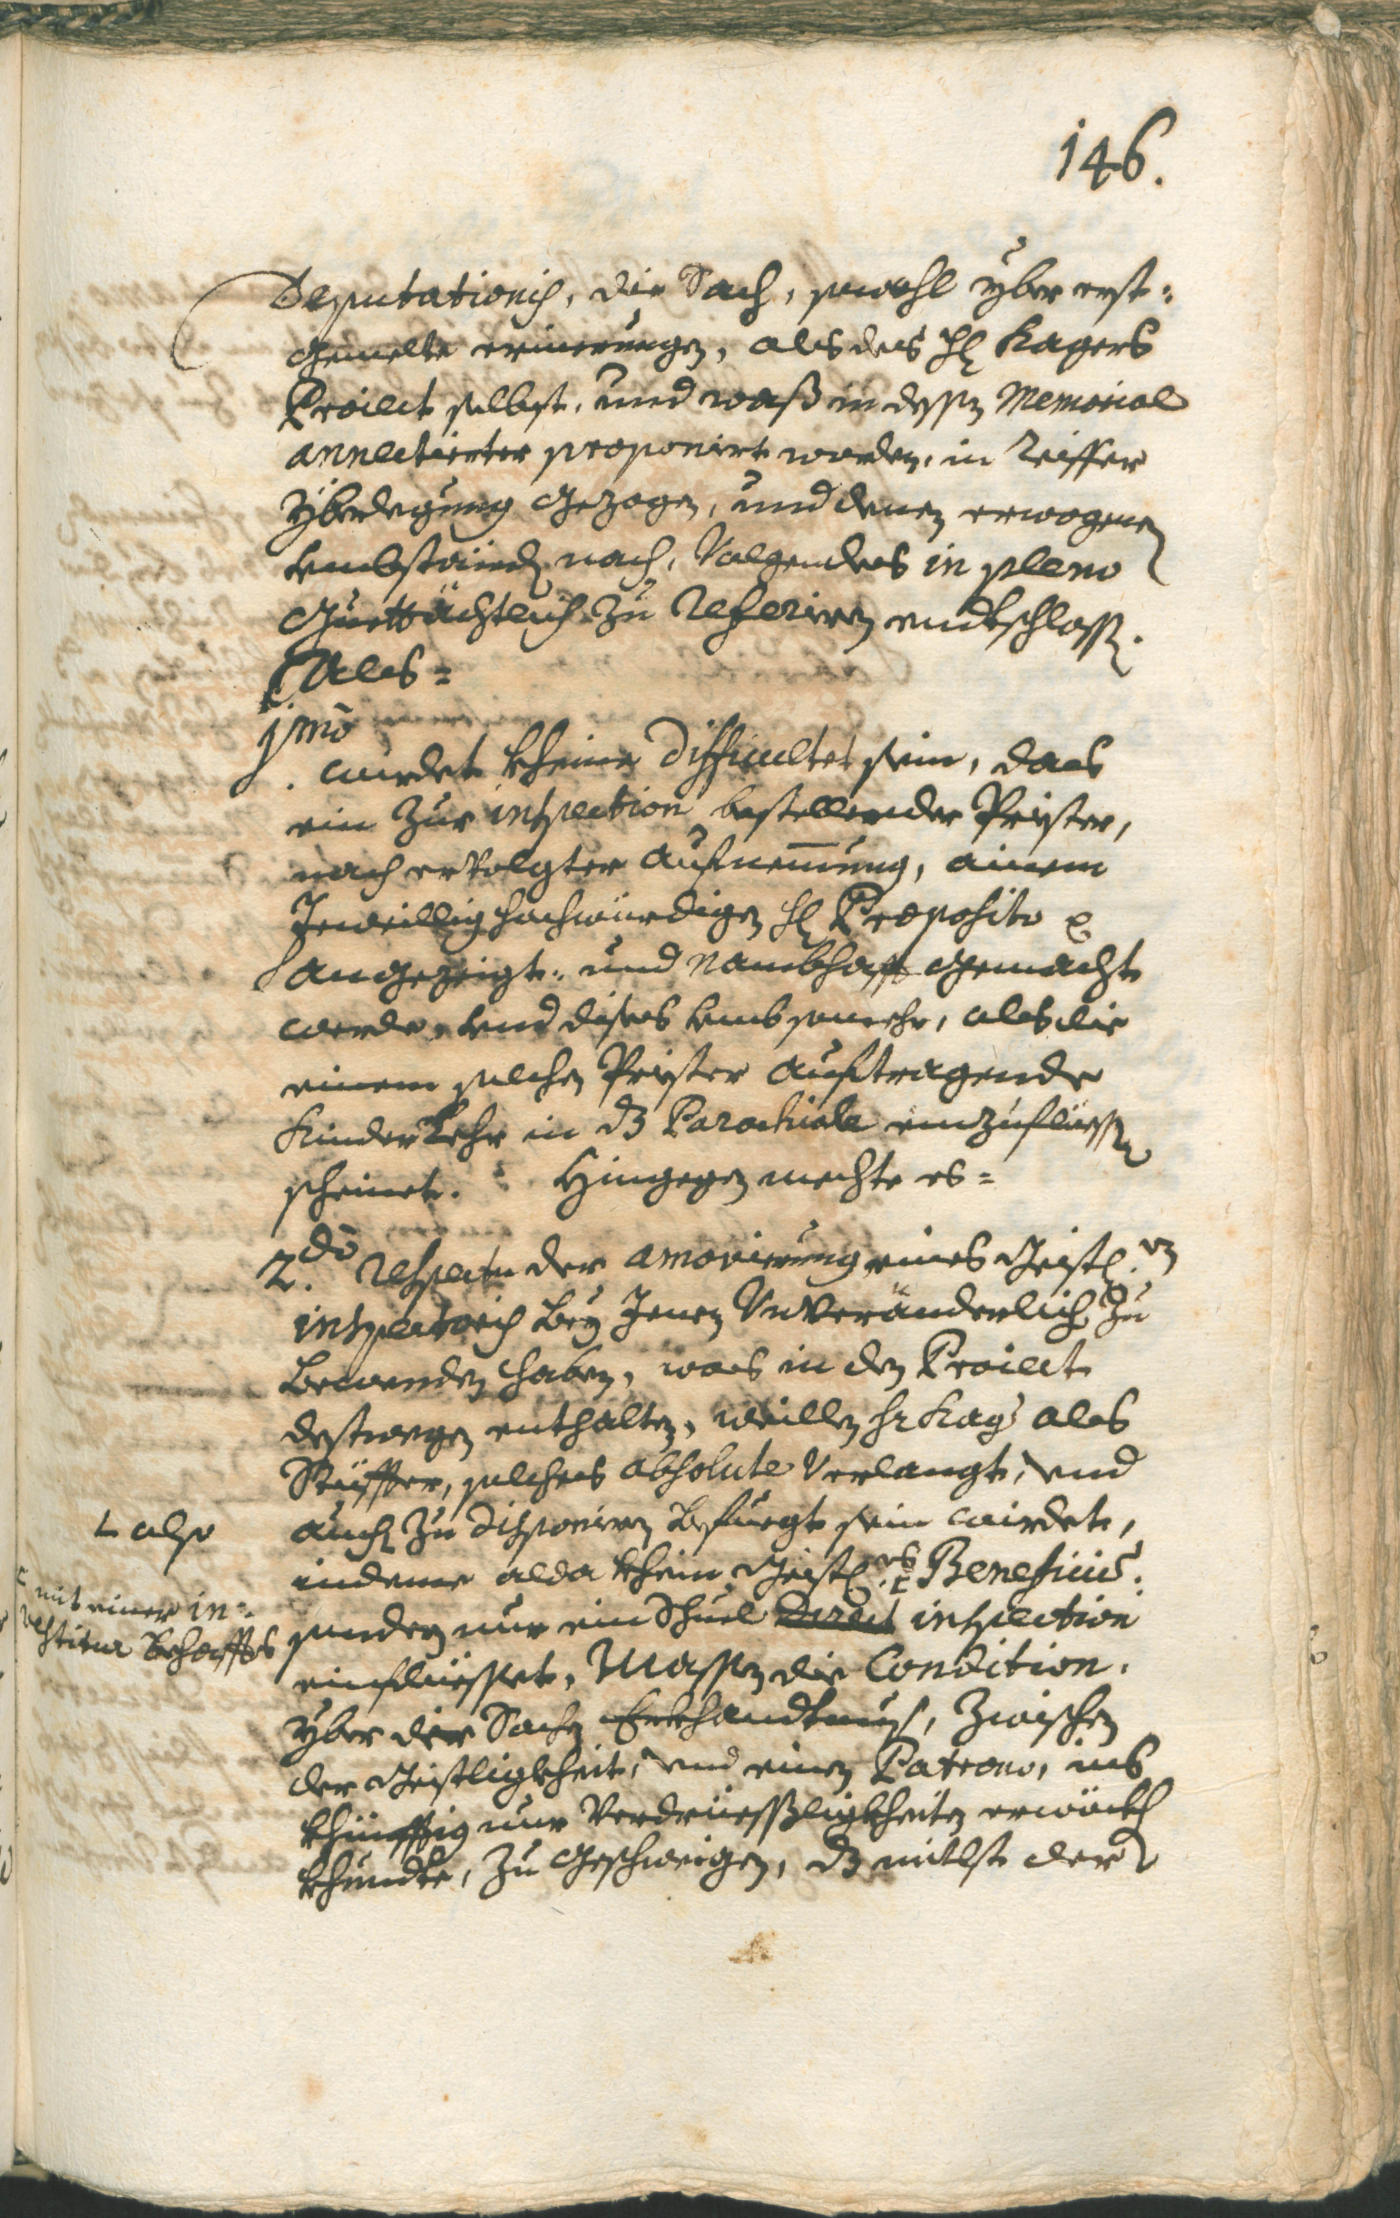 146.
Deputationis, die Sach, sowohl yber erst=
gemelte erinerungen, als des H. Kagers
Proiect selbst, und waß in dessen Memorial
annectierter proponirt worden, in Reiffer
Yberlegung gezogen, und denen erwogenen
Umbständen nach, Volgendes in pleno
Guettächtlich zu Referiren endtschlossen.
Als=
1mo
. wurdet kheine Difficultet sein, das
ein zur inspection bestellender Priester,
nach ervolgter aufnemung, ainem
Jeweillig hochwürdigen H. Præposito
angezeigt- und Nambhafft gemacht
werde, und dises umb somehr, als die
einem solchen Priester auftragende
Kinder Lehr in dz Parochiale einzufliessen
scheinet. Hingegen mechte es=
2.do Respectu der amovirung eines Geistl.en
inspectoris bey Jenen Unveränderlich zu
bewenden haben, was in den Proiect
destwegen enthalten, weillen Hr Kag. als
Stüffter, solches absolute Verlangt, und
└ also
auch zu disponiren befuegt sein wirdet,
indeme alda khein Geistl.es ⊏ Beneficium:
⊏ mit einer in=
vestitur behafftes
sondern nur ein Schuel Direct inspection
einfliesset, Massen die Condition.
yber die Sachen Erkhandtnuß, zwischen
der Geistligkheit, und einen Patrono, ins
khünfftig nur Verdriesslichkheiten erwöckhen
khundte, zu geschweigen, dz mitlst der